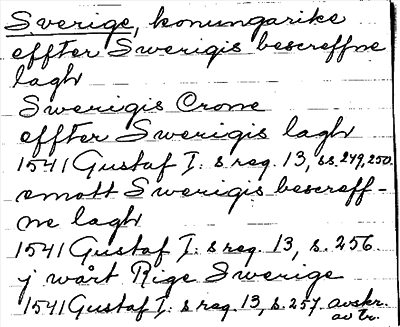 Sverige, konungarike
effter Swerigis bescreffne
lagh
Swerigis Crone
effter Swerigis lagh
1541 Gustaf I: s reg. 13, ss. 249, 250.
emott Swerigis bescreff-
ne lagh
1541 Gustaf I: s reg. 13, s. 256.
j wårt Rige Swerige
1541 Gustaf I: s reg. 13, s. 257. avskr.
av tr.